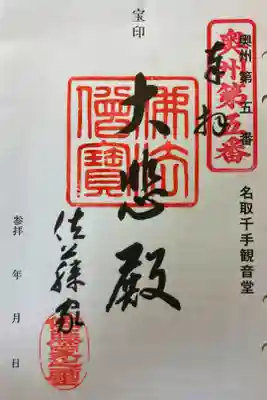 奥州第五番
奥州第五番
名取千手観音堂
奉拝
宝印
佛法
僧寳
大悲殿
佐藤家
参拝 年 月 日